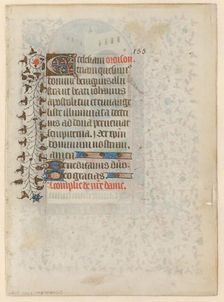 Ecclesiam oroison.
tuam quesumus
domine benignus illus
tra ut beati iohannis
apostoli tui et euuange
liste illuminata doctri
ad dona perueniat
sempiterna. Per xpm
dominum nostrum.
amen.
Benedicamus dño
Deo gratias.
Complie de nře dame.